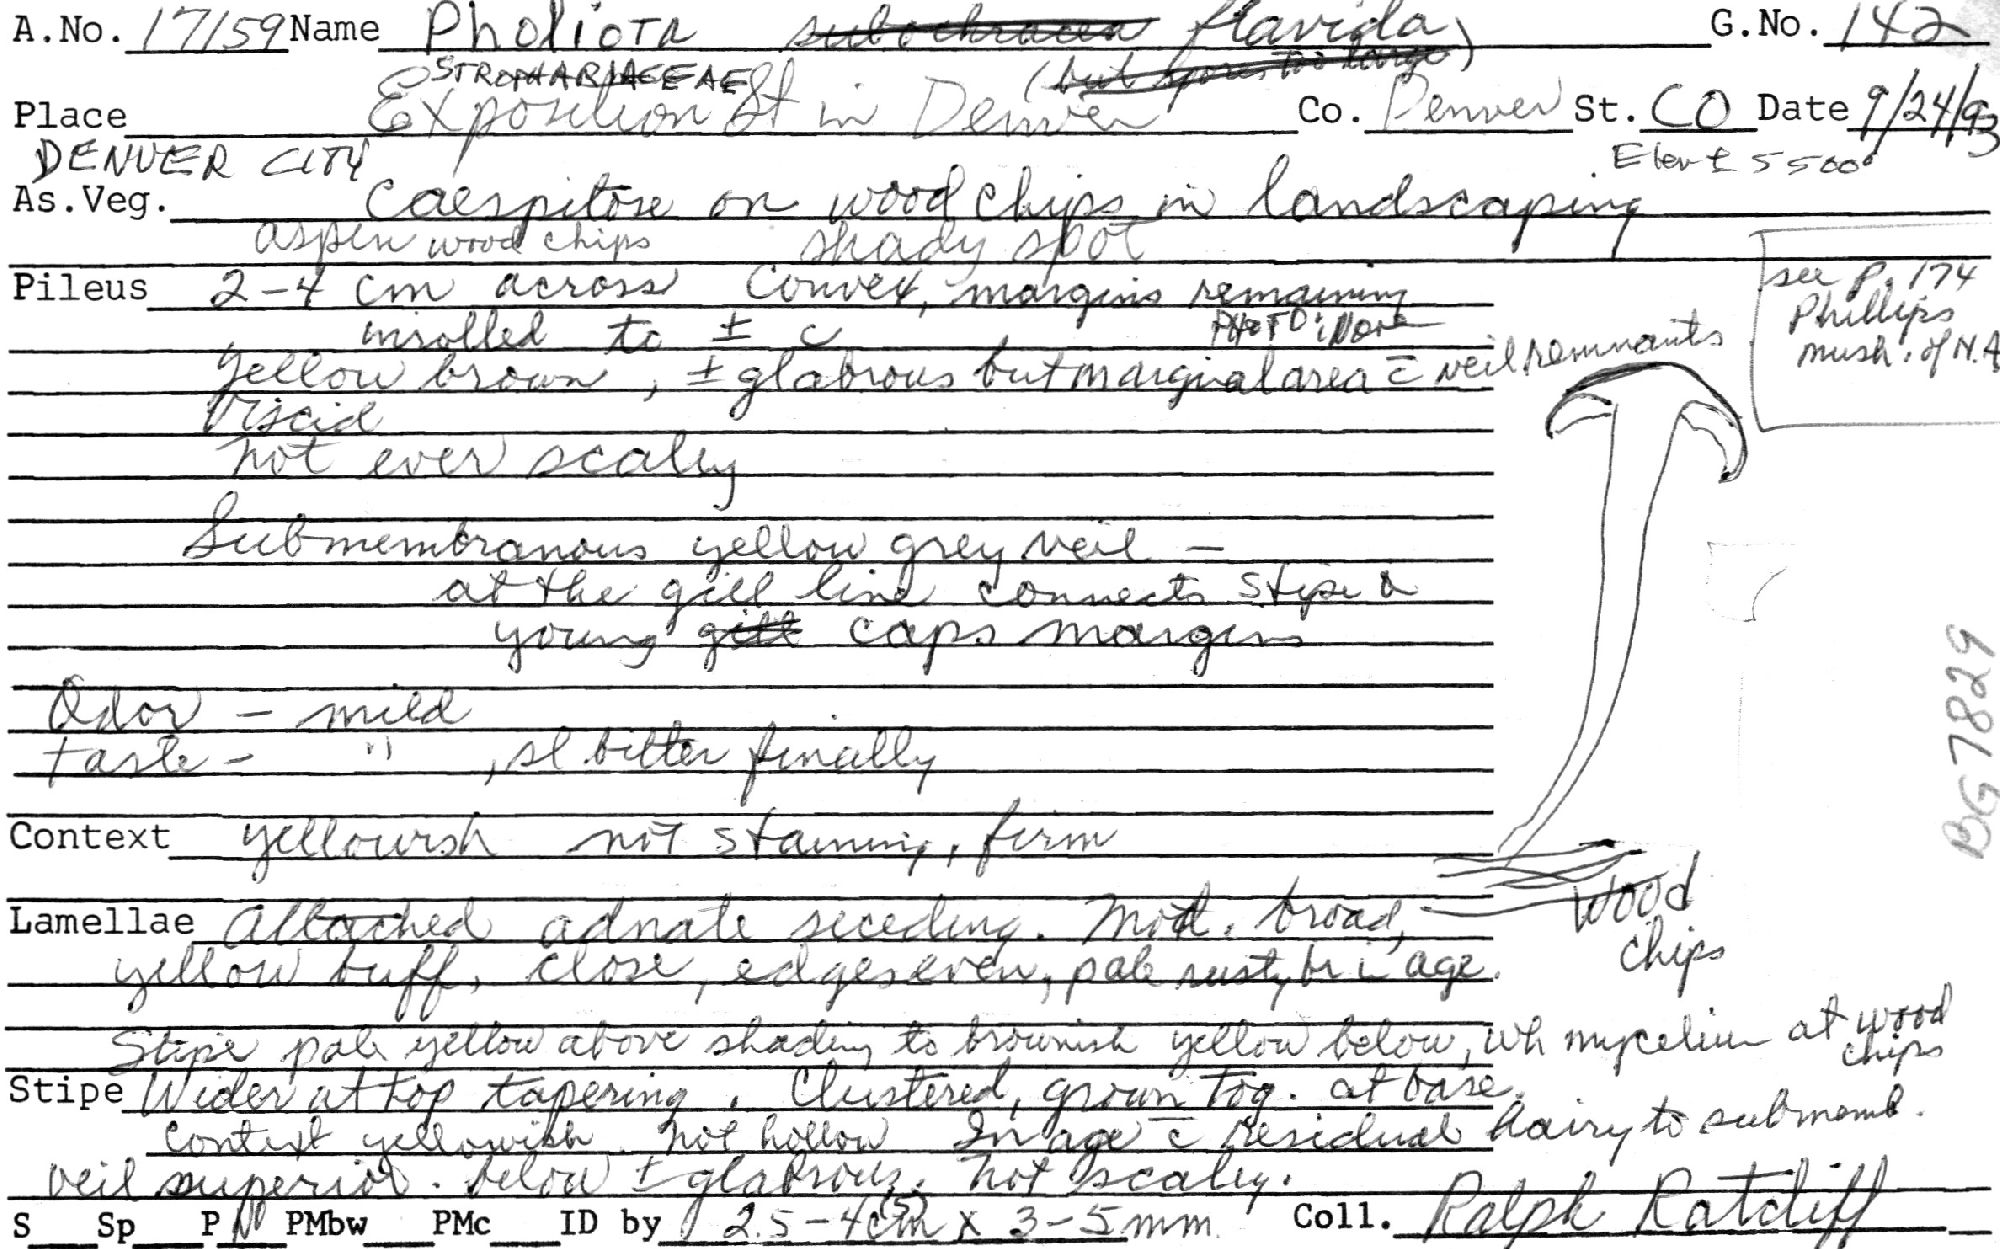 A.No. 17/59 Name Pholiota subochracea flavida G.No. 142
STROPHARIACEAE (but spores too large)
Place Exposition St in Denver Co. Denver St. CO Date 9/24/93
DENVER CITY Elev ± 5500'
As.Veg. Caespitose on wood chips in landscaping
aspen wood chips shady spot
Pileus 2-4 cm across Convex, margins remaining
inrolled to ± c PHOTO: None
yellow brown, ± glabrous but marginal area c̄ veil remnants
Viscid
not ever scaley
see P. 174
Phillips
mush. of N.A
Submembranous yellow grey veil -
at the gill line connects stipe &
young gill caps margins
BG7829
Odor - mild
taste - " , sl bitter finally
Context yellowish not staining, firm
wood
chips
Lamellae Attached adnate seceding. Mod. broad,
yellow buff, close, edges even, pale rusty br i age.
Stipe pale yellow above shading to brownish yellow below, wh mycelium at wood
chips
Stipe Wider at top tapering. Clustered, grown tog. at base.
Context yellowish. not hollow In age c̄ residual hairy to submemb.
veil superior. below ± glabrous. not scaley.
S Sp P No PMbw PMc ID by 2.5-4(5)cm x 3-5mm Coll. Ralph Ratcliff